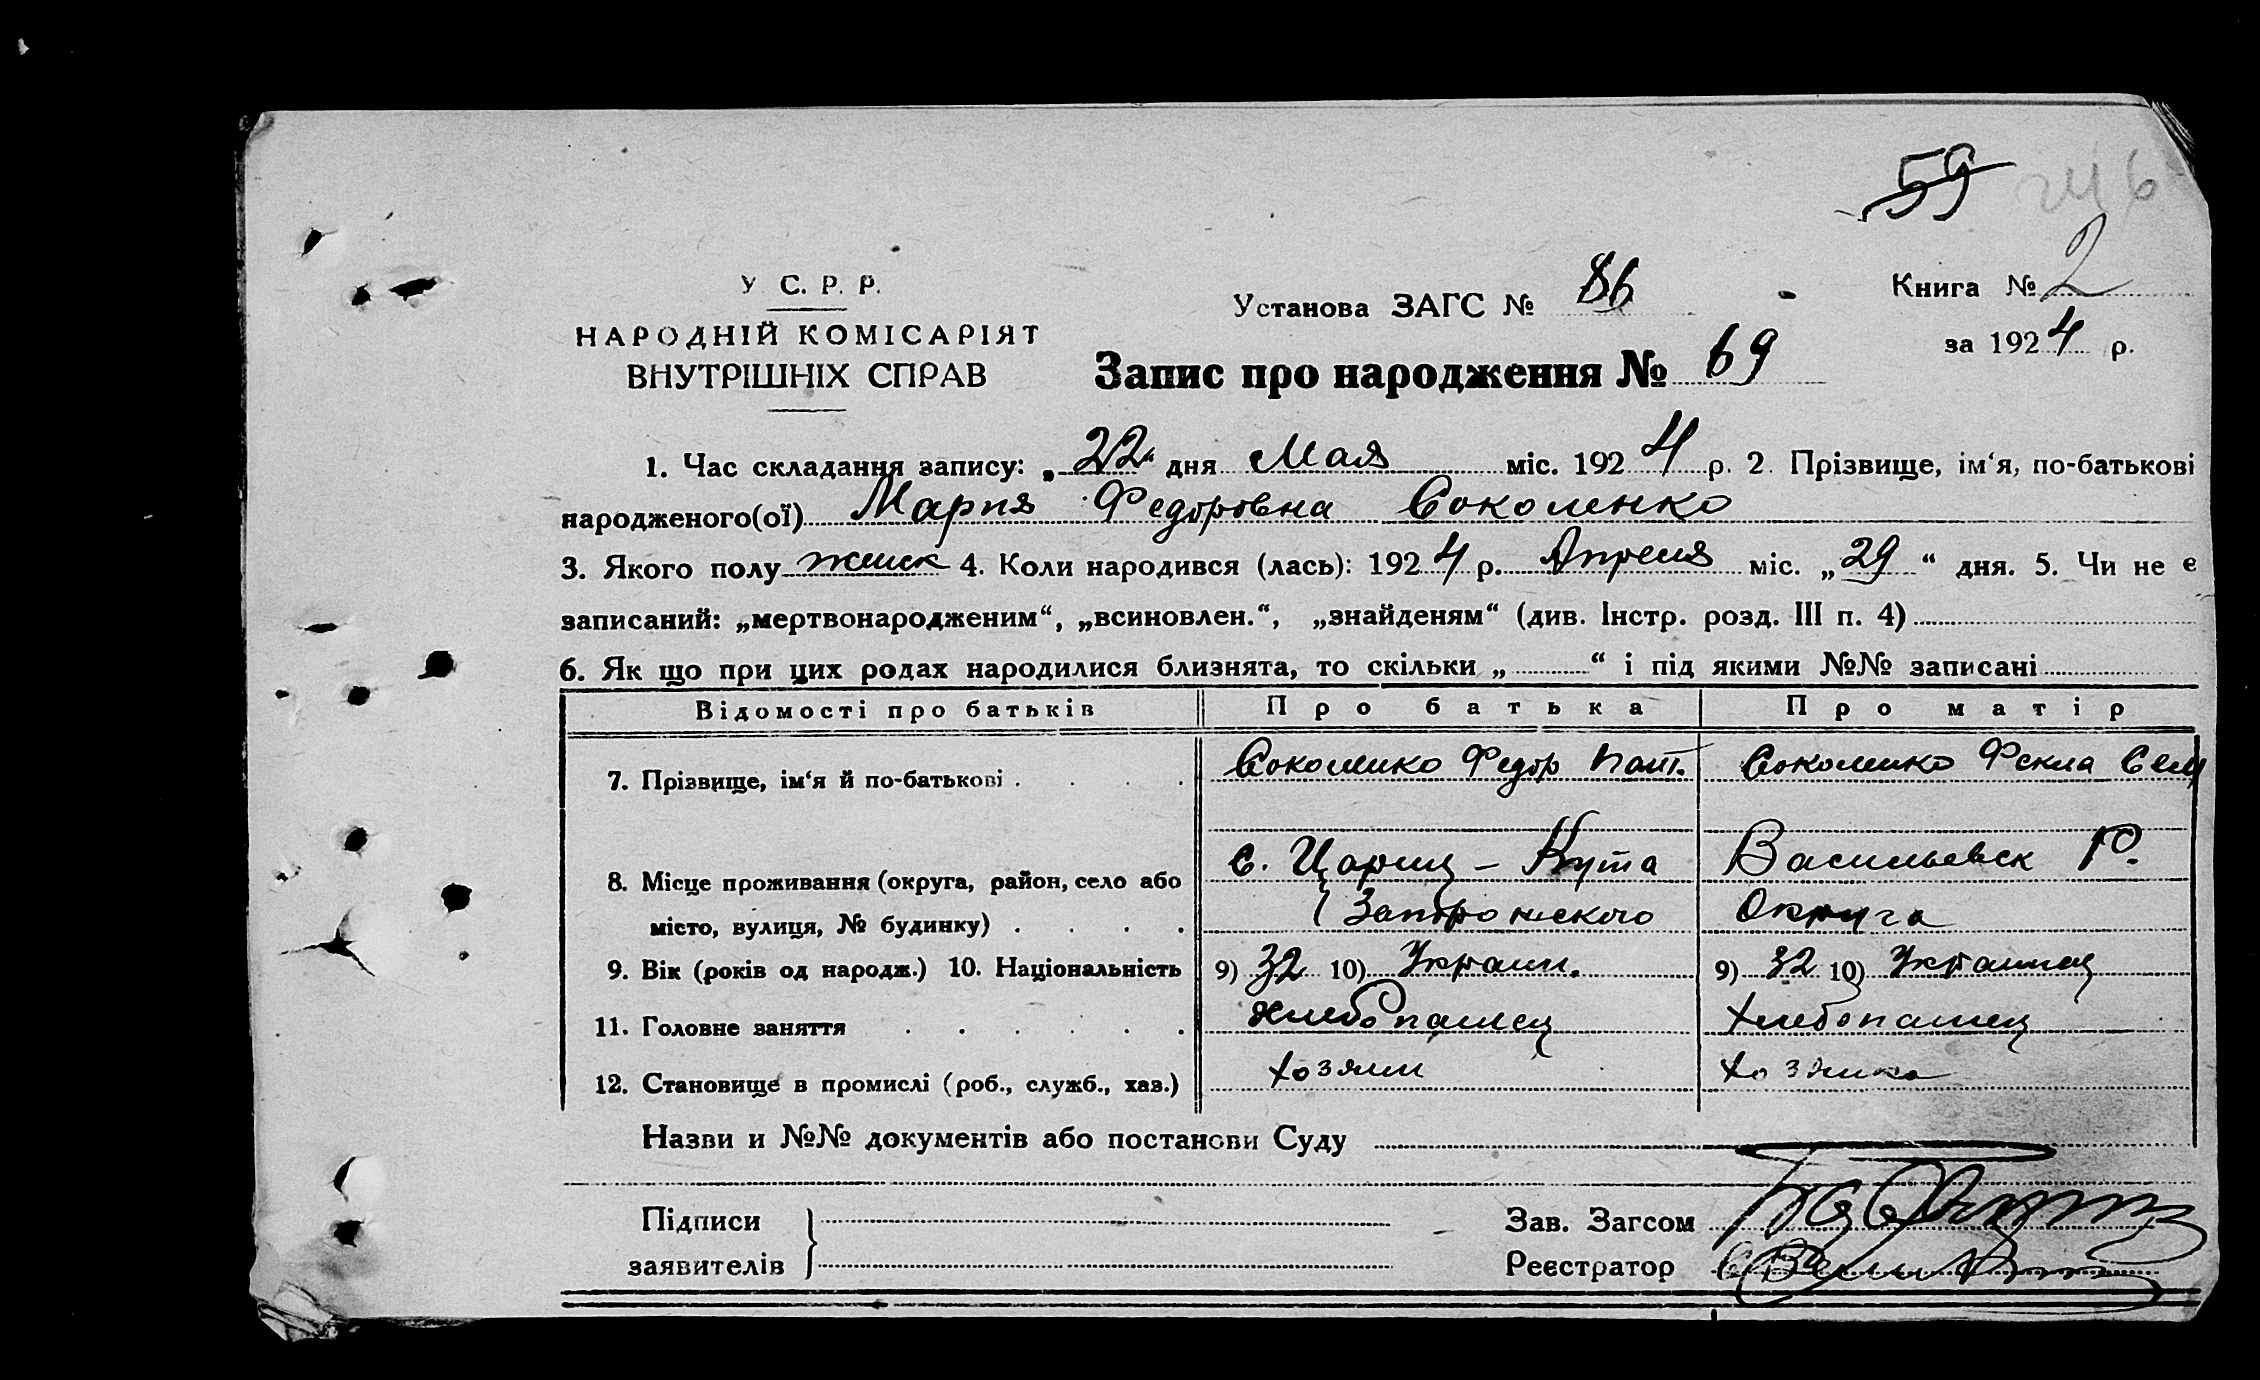 59
У С. Р. Р.
НАРОДНІЙ КОМІСАРІЯТ
ВНУТРІШНІХ СПРАВ
Установа ЗАГС № 86
Книга № 2
за 1924 р.
Запис про народження № 69
1. Час складання запису: „22“ дня Мая міс. 1924 р. 2. Прізвище, ім‘я, по-батькові
народженого(ої) Мария Федоровна Соколенко
3. Якого полу женск 4. Коли народився (лась): 1924 р. Апреля міс. „29“ дня. 5. Чи не є
записаний: „мертвонародженим“, „всиновлен.“, „знайденям“ (див. Інстр. розд. III п. 4)
6. Як що при цих родах народилися близнята, то скільки „ “ і під якими №№ записані
Відомості про батьків Про батька Про матір
7. Прізвище, ім‘я й по-батькові . Соколенко Федор Соколенко Фекла
8. Місце проживання (округа, район, село або с. Цариц – Кута Васильевск Р.
місто, вулиця, № будинку) . Запорожского Округа
9. Вік (років од народж.) 10. Національність 9) 32 10) Украин. 9) 32 10) Украинец
11. Головне заняття хлебопашец хлебопашец
12. Становище в промислі (роб., служб., хаз.) хозяин хозяйка
Назви и №№ документів або постанови Суду
Підписи
заявителів
Зав. Загсом
Реєстратор